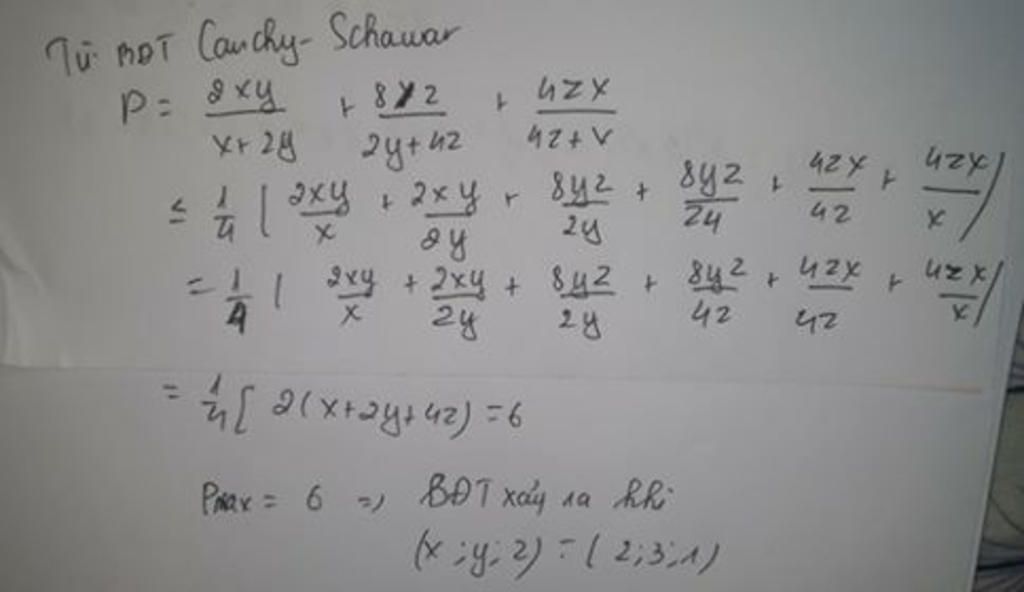 Từ BĐT Cauchy-Schawar
P = 2xy/(x+2y) + 8yz/(2y+4z) + 4zx/(4z+x)
≤ 1/4 ( 2xy/x + 2xy/2y + 8yz/2y + 8yz/24 + 4zx/4z + 4zx/x )
= 1/4 ( 2xy/x + 2xy/2y + 8yz/2y + 8yz/4z + 4zx/4z + 4zx/x )
= 1/4 [ 2(x+2y+4z) = 6
Pmax = 6 => BĐT xảy ra khi
(x;y;z) = (2;3;1)